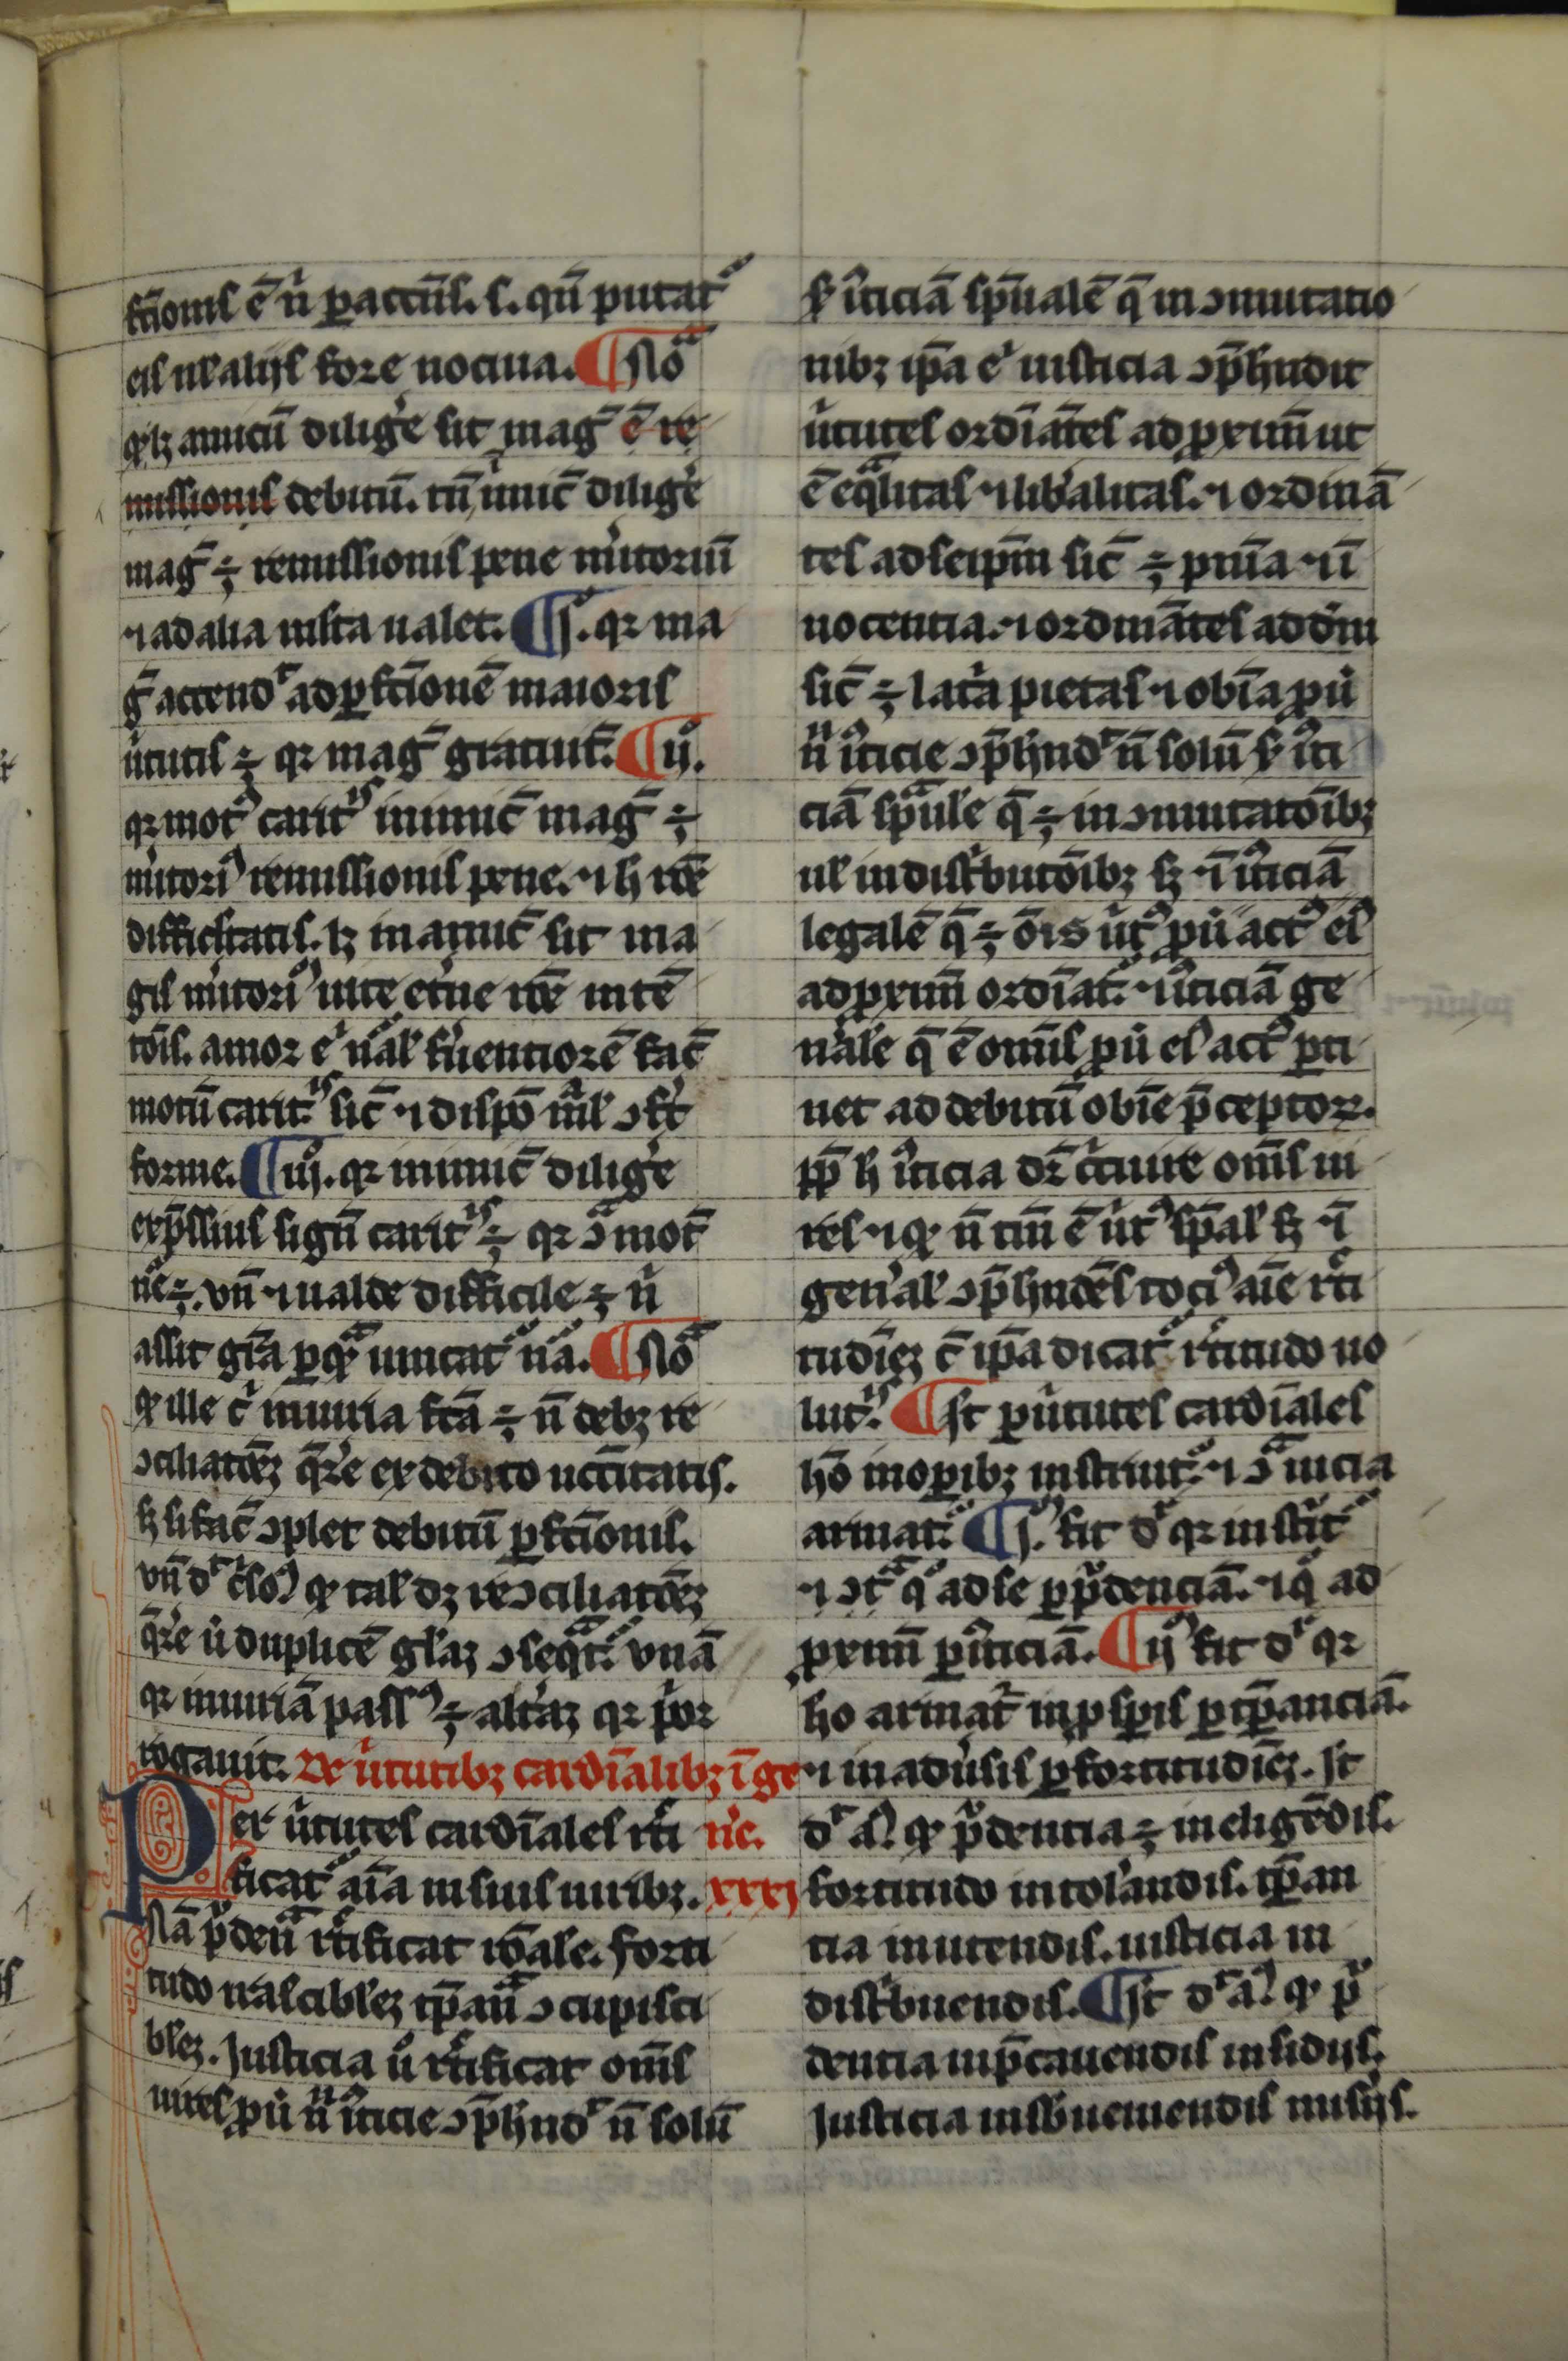 fc̄ionis ē n̄ ꝑ accn̄s. s. qn̄ putat᷑
eis ul̓ alijs fore nociua. ¶ Nō
qͣlꝫ amicū dilig̓e sit maḡ ē re
missionis debitū. tn̄ inimic̄ dilig̓e
maḡ ÷ remissionis pene m̓itoriū
⁊ ad alia iusta ualet. ¶ j. qꝛ ma
ḡ accend᷑ ad ꝑfc̄ionē maioris
u̓tutis ÷ qꝛ maḡ gratuit᷑. ¶ ij.
qꝛ mot᷒ carit᷑ inimic̄ maḡ ÷
m̓itori᷒ remissionis pene. ⁊ h̓ rōe
difficl̓tatis. lꝫ in amic̄ sit ma
gis m̓itori᷒ uite et̓ne rōe intē
tōis. amor e̓ nal̓ fu̓entiorē fac̄
motū carit᷑ sic̄ ⁊ dispō māl̓ ↄfert
forme. ¶ iij. qꝛ inimic̄ dilig̓e
exp̄ssius signū carit᷑ ÷ qꝛ ↄͣ mot̄
ne̓ ÷. vn̄ ⁊ ualde difficile ÷ n̓
assit gr̄a ꝑ qͣ uincat᷑ nā. ¶ Nō
ꝙ ille c̓ iniuria fc̄a ÷ n̄ debꝫ re
ↄciliatōeꝫ q̄r̓e ex debito ncc̄itatis.
sꝫ si fac̄ ↄplet debitū ꝑfc̄ionis.
vn̄ d᷑ c̓so᷒ ꝙ tal̓ dꝫ reↄciliatōeꝫ
q̄r̓e u̓ duplicē gl̓aꝫ ↄseqͣt᷑. vnā
qꝛ iniuriā pass᷒ ÷ alt̓aꝫ qꝛ p̓or
rogauit. De u̓tutibꝫ cardīalibꝫ ī ge
Per u̓tutes cardīales rc̓ti n̓e.
ficat᷑ aīa in suis uiribꝫ. xxxj
Nā p̓denͣ rc̓tificat rōale. forti
tudo irascibl̓eꝫ tꝑanͣ ↄcupisci
bl̓eꝫ. Justicia u̓ rc̓tificat om̄s
uires ꝓut n̄ iͦticie ↄp̄hnd᷑ n̄ solū
s̓ iͦticiā sp̄ualē q̄ in ↄmutatio
nibꝫ ip̄a e̓ iusticia ↄp̄hndit
u̓tutes ordīātes ad ꝓximū ut
ē eqͣlitas ⁊ lib̓alitas. ⁊ ordinā
tes ad seipm̄ sic̄ ÷ pnīa ⁊ ī
nocentia. ⁊ ordinātes ad dm̄
sic̄ ÷ latria pietas ⁊ obīa ꝓut
n̄ iͦticie ↄp̄hnd᷑ n̄ solū s̓ iͦti
ciā sp̄ūle q̄ ÷ in ↄmutatōibꝫ
ul̓ in dist̓butōibꝫ sꝫ ⁊ iͦticiā
legalē q̄ ÷ ōis u̓t᷒ ꝓut act᷒ ei᷒
ad ꝓximū ordīat᷑. ⁊ iͦticiā ge
n̓ale q̄ ē omīs ꝓut ei᷒ act᷒ ꝑti
net ad debitū obīe p̄ceptoꝝ.
ꝓp̄ h̓ iͦticia dr̄ c̓cuire om̄s ui
res ⁊ ꝙ n̄ tm̄ ē u̓t᷒ sp̄al̓ sꝫ ⁊
gen̓al̓ ↄp̄hndēs toci᷒ aīe rc̓ti
tudīeꝫ c̄ ip̄a dicat᷑ rc̓titudo uo
lut᷑. ¶ St ꝑ u̓tutes cardīales
hō in oꝑibꝫ instruit᷑. ⁊ ↄͣ uicia
armat᷑. ¶ j. sit d᷑ qꝛ instruit᷑
⁊ ↄt᷑ qͦ ad se ꝑ p̓denciā. ⁊ qͦ ad
ꝓximū ꝑ iͦticiā. ¶ ij sit d᷑ qꝛ
ho armat᷑ in ꝓspis ꝑ tꝑanciā.
⁊ in adu̓sis ꝑ fortitudīeꝫ. St
d᷑ a᷒. ꝙ p̓dentia ÷ in eligēdis.
fortitudo in tol̓andis. tꝑan
tia in utendis. iusticia in
dist̓buendis. ¶ St d᷑ a᷒. ꝙ p̓
dentia in p̄cauendis insidijs.
Justicia in sb̓ueniendis mis̓ijs.